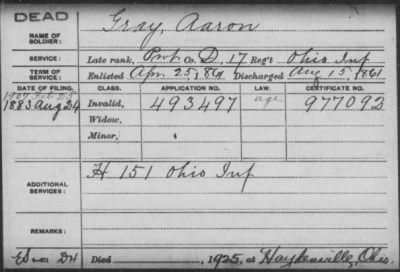 DEAD
Gray, Aaron
NAME OF SOLDIER:
SERVICE: Late rank, Prvt Co. D, 17 Reg't Ohio Inf
TERM OF SERVICE: Enlisted Apr. 25, 1861 Discharged Aug 15, 1861
DATE OF FILING. CLASS. APPLICATION NO. LAW. CERTIFICATE NO.
1907 Feb 25
1883 Aug 24 Invalid, 493497 age 977092
Widow,
Minor,
ADDITIONAL SERVICES: H 151 Ohio Inf
REMARKS:
Died , 1925, at Haydenville, Ohio.